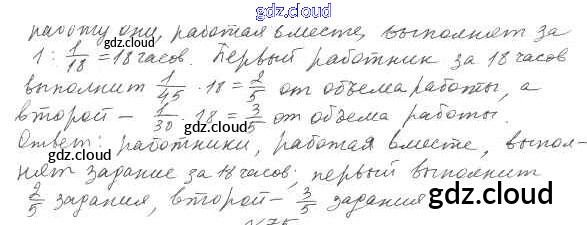 gdz.cloud
работу они, работая вместе, выполнят за
1 : 1/18 = 18 часов. Первый работник за 18 часов
gdz.cloud gdz.cloud
выполнит 1/45 · 18 = 2/5 от объема работы, а
gdz.cloud gdz.cloud
второй – 1/30 · 18 = 3/5 от объема работы.
Ответ: работники, работая вместе, выпол-
gdz.cloud gdz.cloud
нят задание за 18 часов; первый выполнит
2/5 задания, второй – 3/5 задания
gdz.cloud
№75